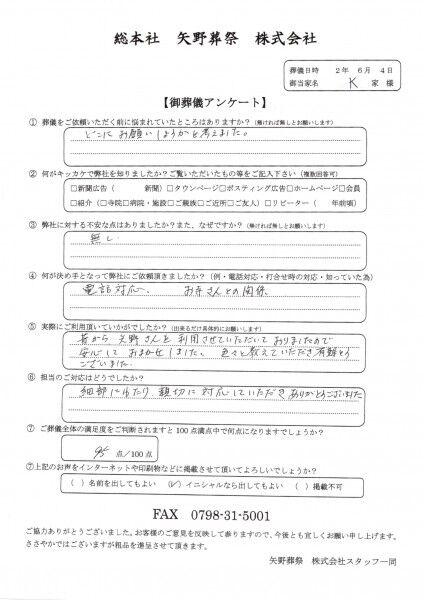 総本社 矢野葬祭 株式会社
葬儀日時 2年 6月 4日
御当家名 K 家 様
【御葬儀アンケート】
① 葬儀をご依頼いただく前に悩まれていたところはありますか？(無ければ無しとお願いします)
どこにお願いしようかと考えました。
② 何がキッカケで弊社を知りましたか？ご覧いただいたもの等をご記入下さい (複数回答可)
□新聞広告（ 新聞）□タウンページ□ポスティング広告□ホームページ□会員
□紹介（□寺院□病院・施設□ご親族□ご近所□ご友人）□リピーター（ 年前頃）
③ 弊社に対する不安な点はありましたか？また、なぜですか？(無ければ無しとお願いします)
無し
④ 何が決め手となって弊社にご依頼頂きましたか？(例・電話対応・打合せ時の対応・知っていた為)
電話対応、 お寺さんとの関係
⑤ 実際にご利用頂いていかがでしたか？(出来るだけ具体的にお願いします)
昔から矢野さんを利用させていただいておりましたので
安心しておまかせしました。色々と教えていただき有難とう
ございました。
⑥ 担当のご対応はどうでしたか？
細部にわたり、親切に対応していただきありがとうございました
⑦ ご葬儀全体の満足度をご判断されますと100点満点中で何点になりますでしょうか？
95 点/100点
⑦上記のお声をインターネットや印刷物などに掲載させて頂いてよろしいでしょうか？
（ ）名前を出してもよい （✓）イニシャルなら出してもよい （ ）掲載不可
FAX 0798-31-5001
ご協力ありがとうございました。お客様のご意見を反映して参りますので、今後とも宜しくお願い申し上げます。
ささやかではございますが粗品を進呈させて頂きます。
矢野葬祭 株式会社スタッフ一同